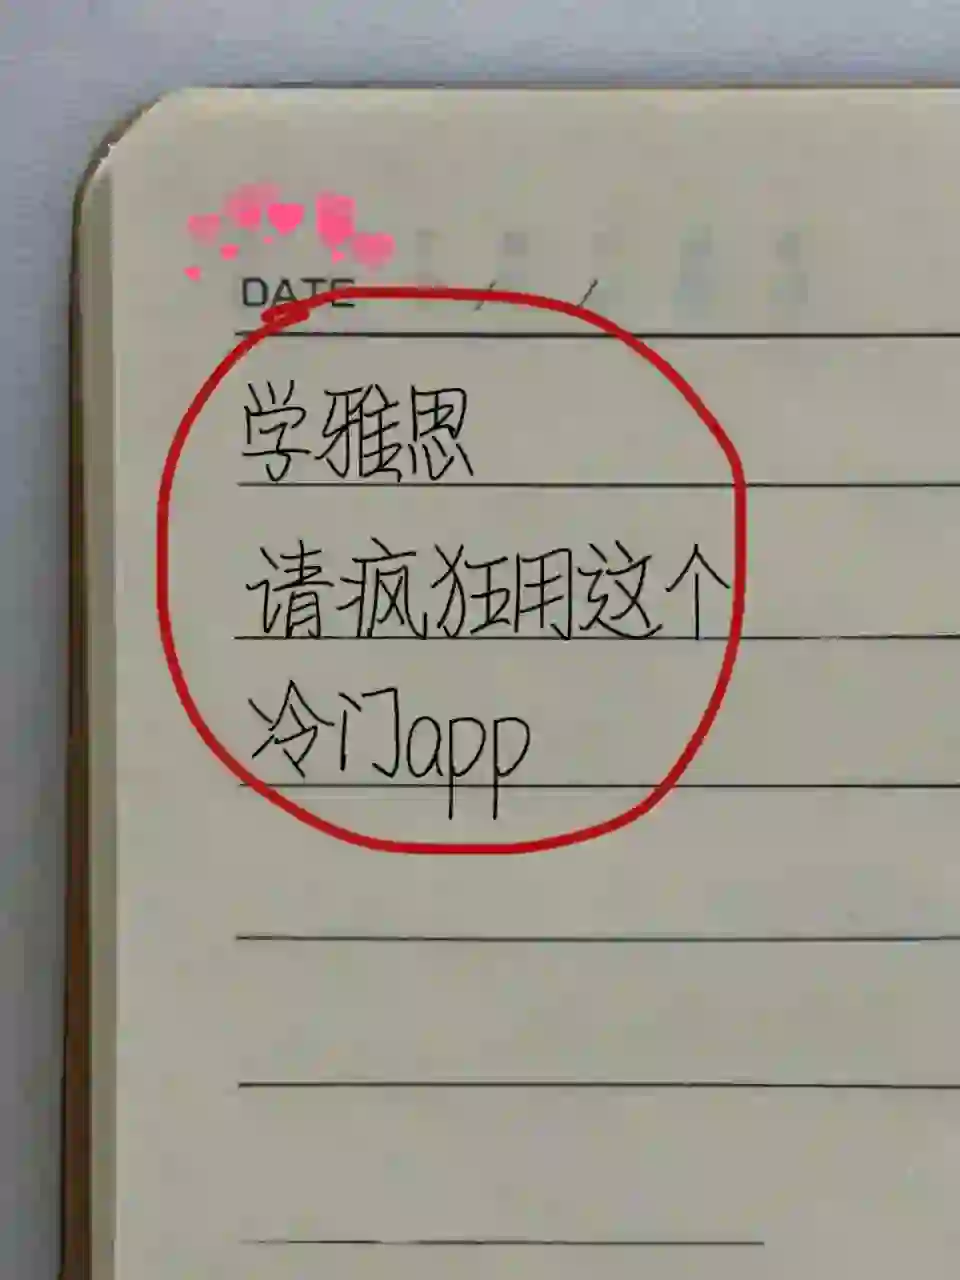 DATE / /
学雅思
请疯狂用这个
冷门app